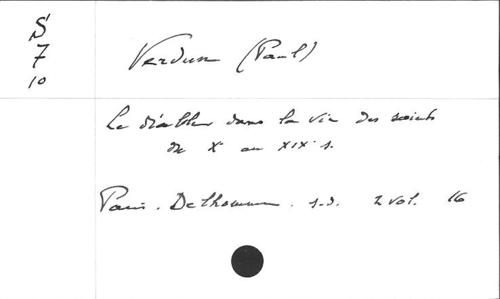 S
7
10
Verdun (Paul)
Le diable dans la vie des saints
du Xe au XIXe s.
Paris. Delhomme. s.d. 2 vol. 16